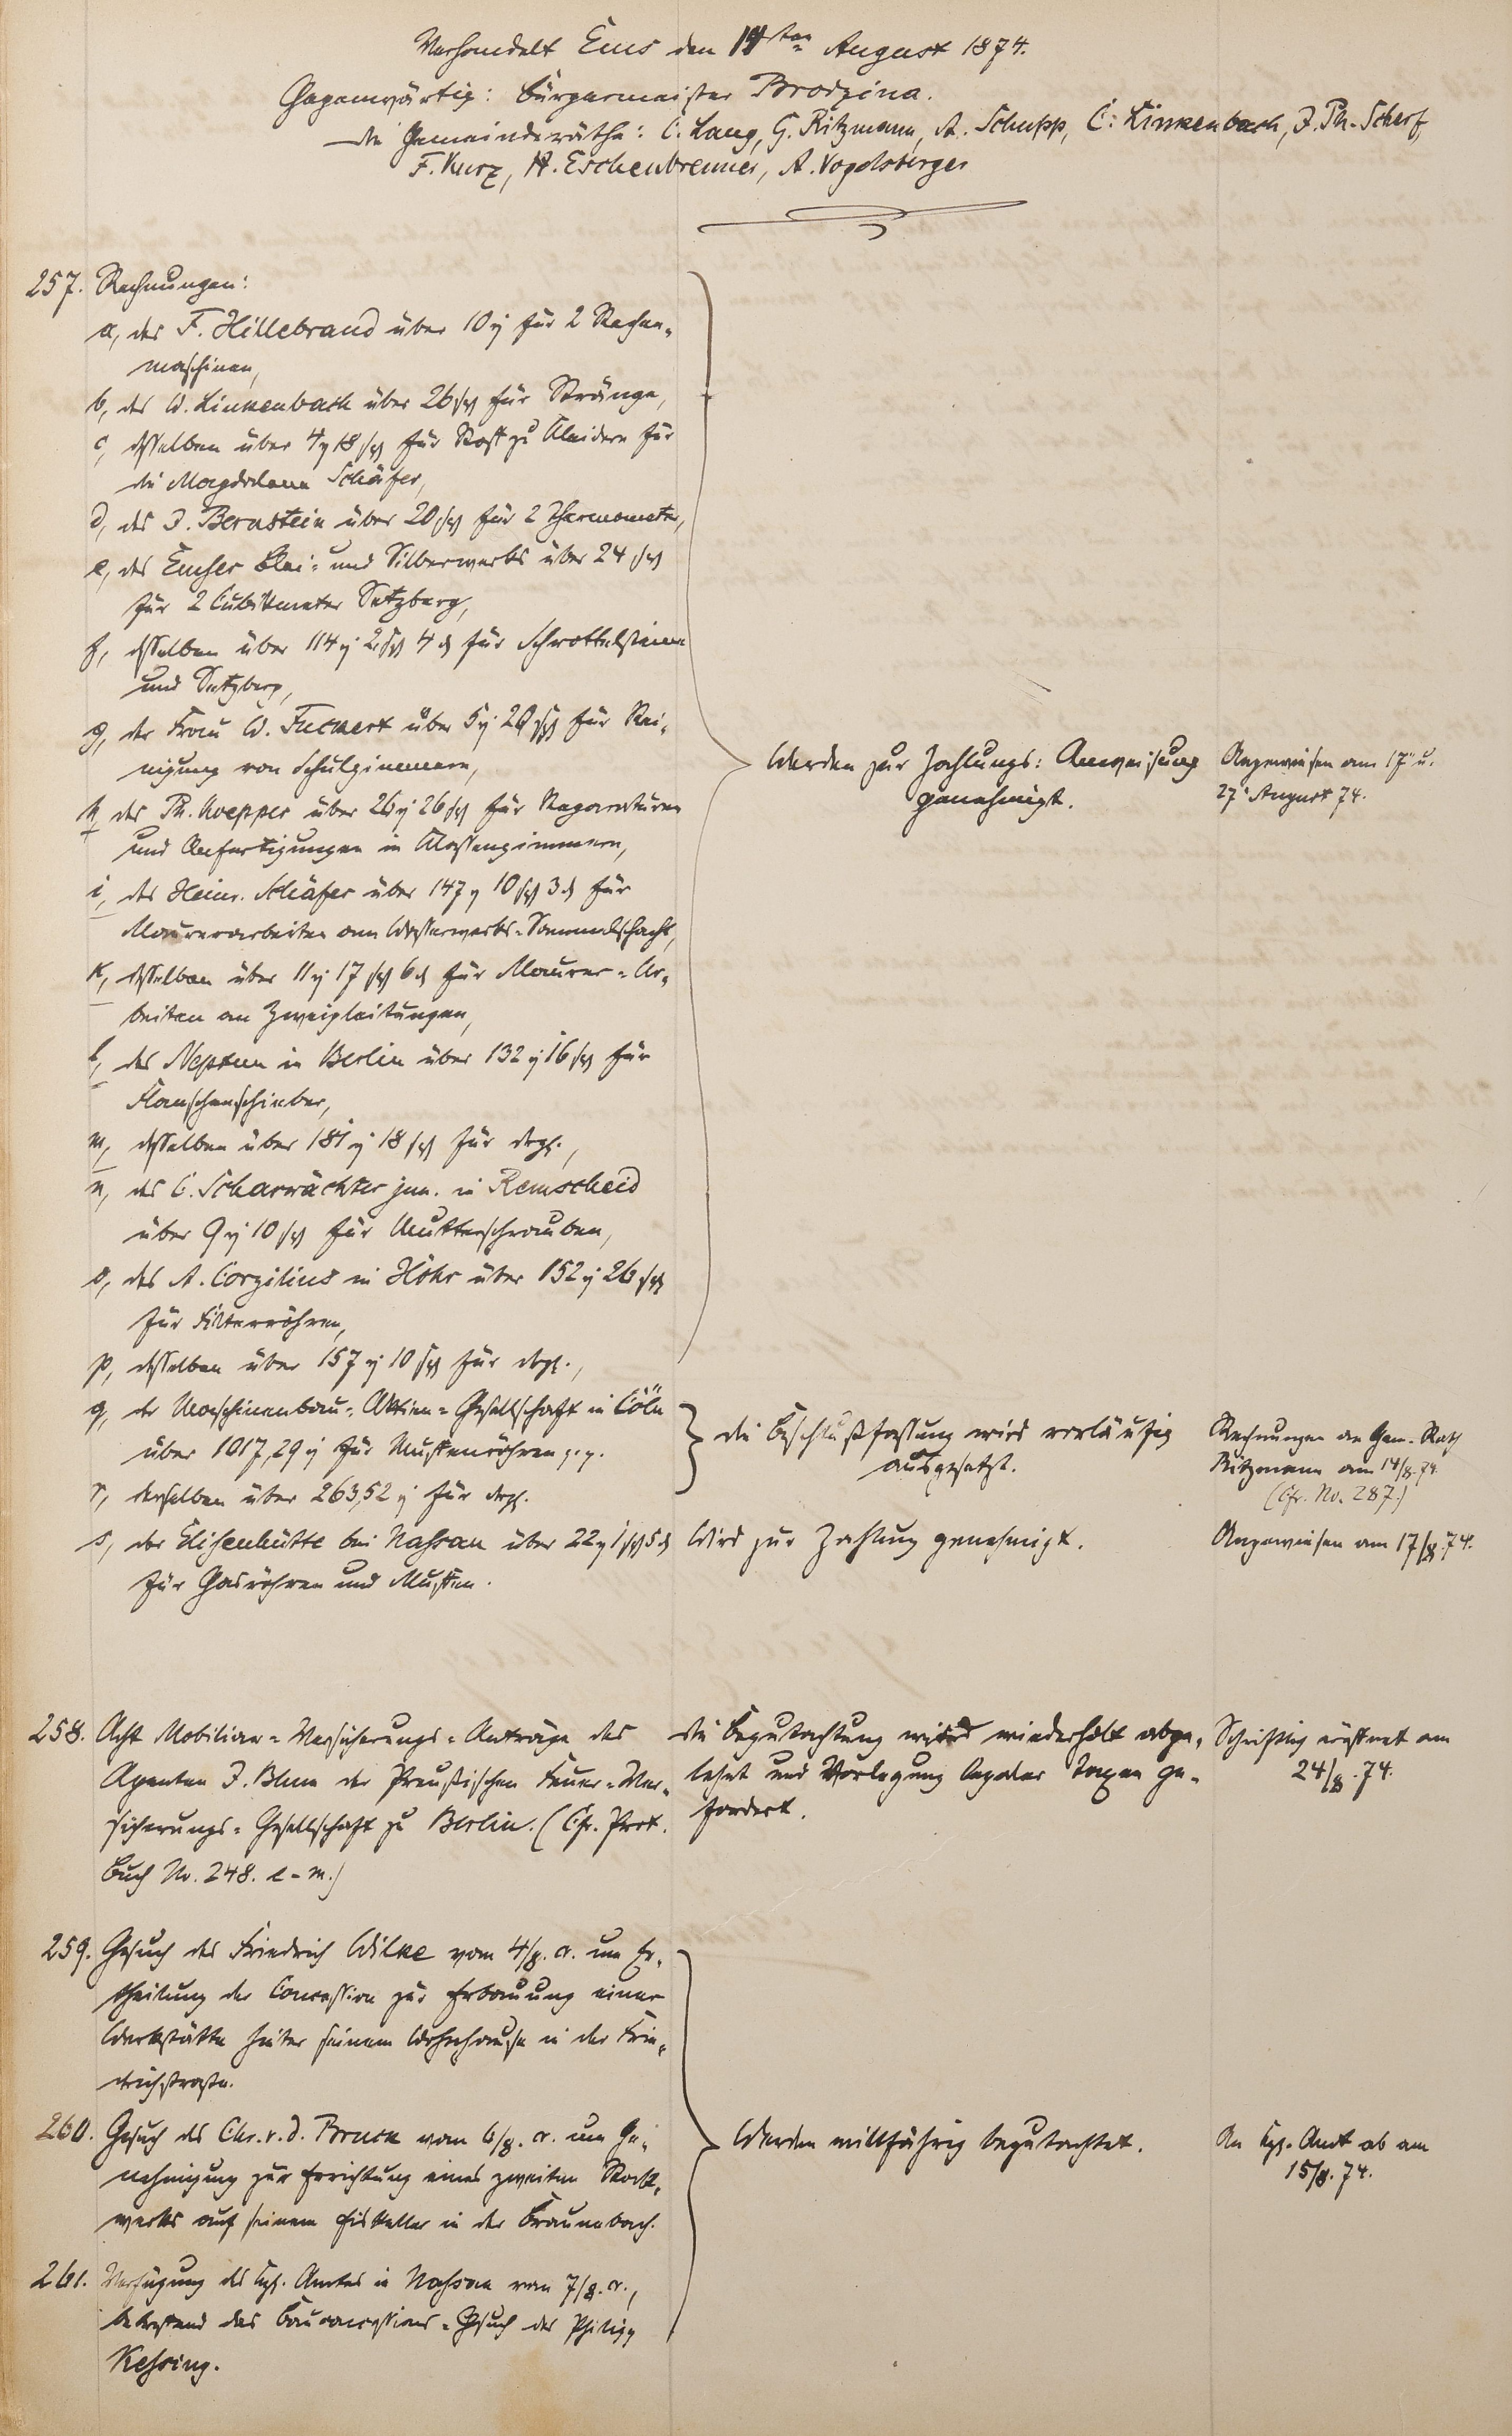 Verhandelt Ems den 14ten August 1874.
Gegenwärtig: Bürgermeister Brodzina.
die Gemeinderäthe: C. Lang, G. Ritzmann, A. Schupp, C. Linkenbach, J. Ph. Scherf,
F. Kurz, H. Eschenbrenner, A. Vogelsberger
257. Rechnungen:
a, des F. Hillebrand über 10 für 2 Rechen-
maschinen,
b, des W. Linkenbach über 26 sgr für Stränge,
c, desselben über 4 18 sgr für Stoff zu Kleidern für
die Magdalena Schäfer,
d, des J. Bernstein über 20 sgr für 2 Thermometer,
e, des Emser Blei- und Silberwerks über 24 sgr
für 2 Cubikmeter Setzberg,
f, desselben über 114 2 sgr 4 d für Schrottelsteine
und Setzberg,
g, der Frau W. Fuckert über 5 29 sgr für Rei-
nigung von Schulzimmern,
h, des Ph. Koepper über 26 26 sgr für Reparaturen
und Anfertigungen in Klassenzimmern,
i, des Heinr. Schäfer über 147 10 sgr 3 d für
Maurerarbeiten am Wasserwerks-Sammelschacht,
k, desselben über 11 17 sgr 6 d für Maurer-Ar-
beiten an Zweigleitungen,
l, des Neptun in Berlin über 132 16 sgr für
Flanschenschieber,
m, desselben über 181 18 sgr für drgl.,
n, des C. Scharwächter jun. in Remscheid
über 9 10 sgr für Mutterschrauben,
o, des A. Corzilius in Höhr über 152 26 sgr
für Filterröhren,
p, desselben über 157 10 sgr für drgl.,
Werden zur Zahlungs-Anweisung
genehmigt.
Angewiesen am 17. u.
27. August 74.
q, der Maschinenbau-Aktien-Gesellschaft in Cöln
über 1017,29 für Muffenröhren p.p.
r, derselben über 263,52 für drgl.
die Beschlußfassung wird vorläufig
ausgesetzt.
Rechnungen an Gem. Rath
Ritzmann am 14/8.74.
(Cfr. No. 287.)
s, der Elisenhütte bei Nassau über 22 1 sgr 5 d
für Gasröhren und Muffen.
Wird zur Zahlung genehmigt.
Angewiesen am 17/8.74.
258. Acht Mobiliar-Versicherungs-Anträge des
Agenten J. Blum der Preußischen Feuer-Ver-
sicherungs-Gesellschaft zu Berlin. (Cfr. Prot.
Buch No. 248. e-m.)
die Begutachtung wird wiederholt abge-
lehnt und Vorlegung legaler Taxen ge-
fordert.
Schriftlich eröffnet am
24/8.74.
259. Gesuch des Friedrich Wilke vom 4/8. cr. um Er-
theilung der Concession zur Erbauung einer
Werkstätte hinter seinem Wohnhause in der Frie-
drichstraße.
260. Gesuch des Chr. v. d. Bruck vom 6/8. cr. um Ge-
nehmigung zur Errichtung eines zweiten Stock-
werks auf seinem Eiskeller in der Braunebach.
261. Verfügung des Kgl. Amtes in Nassau vom 7/8. cr.,
betreffend das Bauconcessions-Gesuch des Philipp
Kehring.
Werden willfährig begutachtet.
An Kgl. Amt ab am
15/8.74.